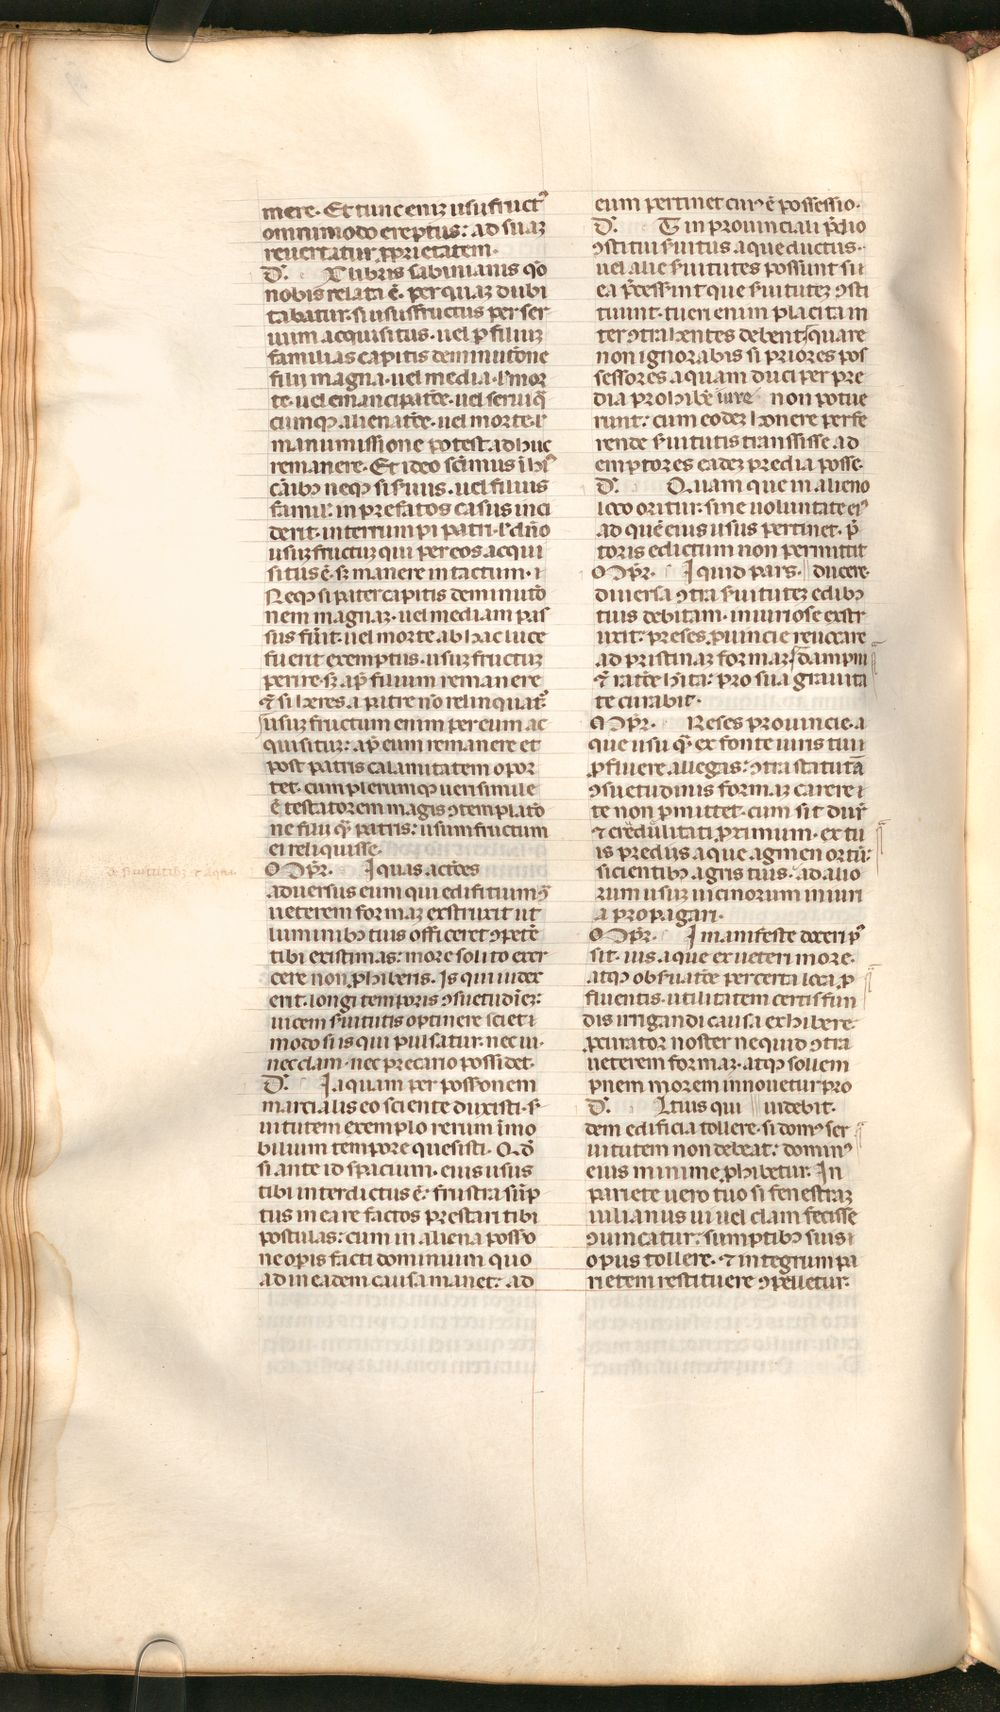 mere. Et tunc eniȝ usufruct᷒
omnimodo ereptus: ad suaȝ
reuertatur ꝓprietatem.
D͛. T libris sabinianis q̄o
nobis relata ē. per quaȝ dubi
tabatur. si ususfructus per ser
uum acquisitus. uel ꝑ filiuȝ
familias capitis deminutōne
filij magna. uel media. ł mor
te. uel emancipatōe. uel seruiꝗ
cumqꝫ alienatōe. uel morte. ł
manumissione potest. adhuc
remanere. Et ideo scīmus ī hi᷒
cāibꝫ neqꝫ si s̄uus. uel filius
famil. in prefatos casus inci
derit. interrumpi patri. ł dn̄o
usuȝfructuȝ qui per eos acqui
situs ē. sꝫ manere intactum. ⁊
Neqꝫ si pater capitis deminutō
nem magnaȝ. uel mediam pas
sus fūit. uel morte ab hac luce
fuerit exemptus. usuȝfructuȝ
perire. sꝫ ap̄ filium remanere
⁊̄ si heres a patre nō relinquat᷒.
usuȝfructum enim per eum ac
quisituȝ: ap̄ eum remanere et
post patris calamitatem opor
tet. cum plerumqꝫ uerisimile
ē testatorem magis ꝯtemplatō
ne filii q̄ȝ patris: usumfructum
ei reliquisse.
O Ip̄r. I quas actōes
aduersus eum qui edifitium ꝯ̄
ueterem formaȝ exstruxit ut
luminibꝫ tuis officeret ꝯpetē
tibi existimas: more solito exer
cere non ꝓhiberis. Is qui iudex
erit. longi temporis ꝯsuetudīeȝ:
uicem s̄uitutis optinere sciet. ⁊
modo si is qui pulsatur. nec ui.
nec clam. nec precario possidet.
D͛. I aquam per poss̄onem
marcialis eo sciente duxisti. s̄
uitutem exemplo rerum īmo
bilium tempore quesisti. Q. d̄
si ante id spacium. eius usus
tibi interdictus ē: frustra sūp
tus in ea re factos prestari tibi
postulas: cum in aliena poss̄o
ne opis facti dominium quo
ad in eadem causa manet: ad
eum pertinet cui᷒ ē possessio.
D͛. T in prouinciali p̄dio
ꝯstitui s̄uitus aqueductus.
uel alie s̄uitutes possunt. si
ea p̄cesserint que s̄uituteȝ ꝯsti
tuunt. tueri enim placita in
ter ꝯtrahentes debent. quare
non ignorabis si priores pos
sessores aquam duci per pre
dia prohibē iure non potue
runt: cum eodeȝ honere perfe
rende s̄uitutis transisse ad
emptores eadeȝ predia posse.
D͛. Quam que in alieno
loco oritur. sine uoluntate ei᷒
ad quē eius usus pertinet. p̄
toris edictum non permittit
O Ip̄r. I quid pars. ducere.
diuersa ꝯtra s̄uituteȝ edibꝫ
tuis debitam. iniuriose exstr
uxit: preses ꝓuincie reuocare
ad pristinaȝ formaȝ. dampni
⁊̄ ratōe hīta: pro sua grauita
te curabit.
O Ip̄r. Reses prouincie. a
que usu q̄ȝ ex fonte iuris tui
ꝓfluere allegas: ꝯtra statutā
ꝯsuetudinis formaȝ carere
te non ꝑmittet. cum sit dur᷒
⁊ crēdulitati ꝓximum. ex tu
is prediis aque agmen ortū:
sicientibꝫ agris tuis. ad alio
rum usuȝ uicinorum iniuri
a propagari.
O Ip̄r. I manifeste doceri p᷒
sit. ius aque ex ueteri more.
atqꝫ obs̄uatōe per certa loca ꝓ
fluentis. utilitatem certis fun
dis irrigandi causa exhibere
ꝓcurator noster ne quid ꝯtra
ueterem formaȝ. atqꝫ sollem
pnem morem innouetur pro
D͛. Ltius qui uidebit.
dem edificia tollere. si dom᷒ ser
uitutem non debeat: domin᷒
eius minime ꝓhibetur. In
pariete uero tuo si fenestraȝ
iulianus ui uel clam fecisse
ꝯuincatur: sumptibꝫ suis ⁊
opus tollere. ⁊ integrum pa
rietem restituere ꝯpelletur.